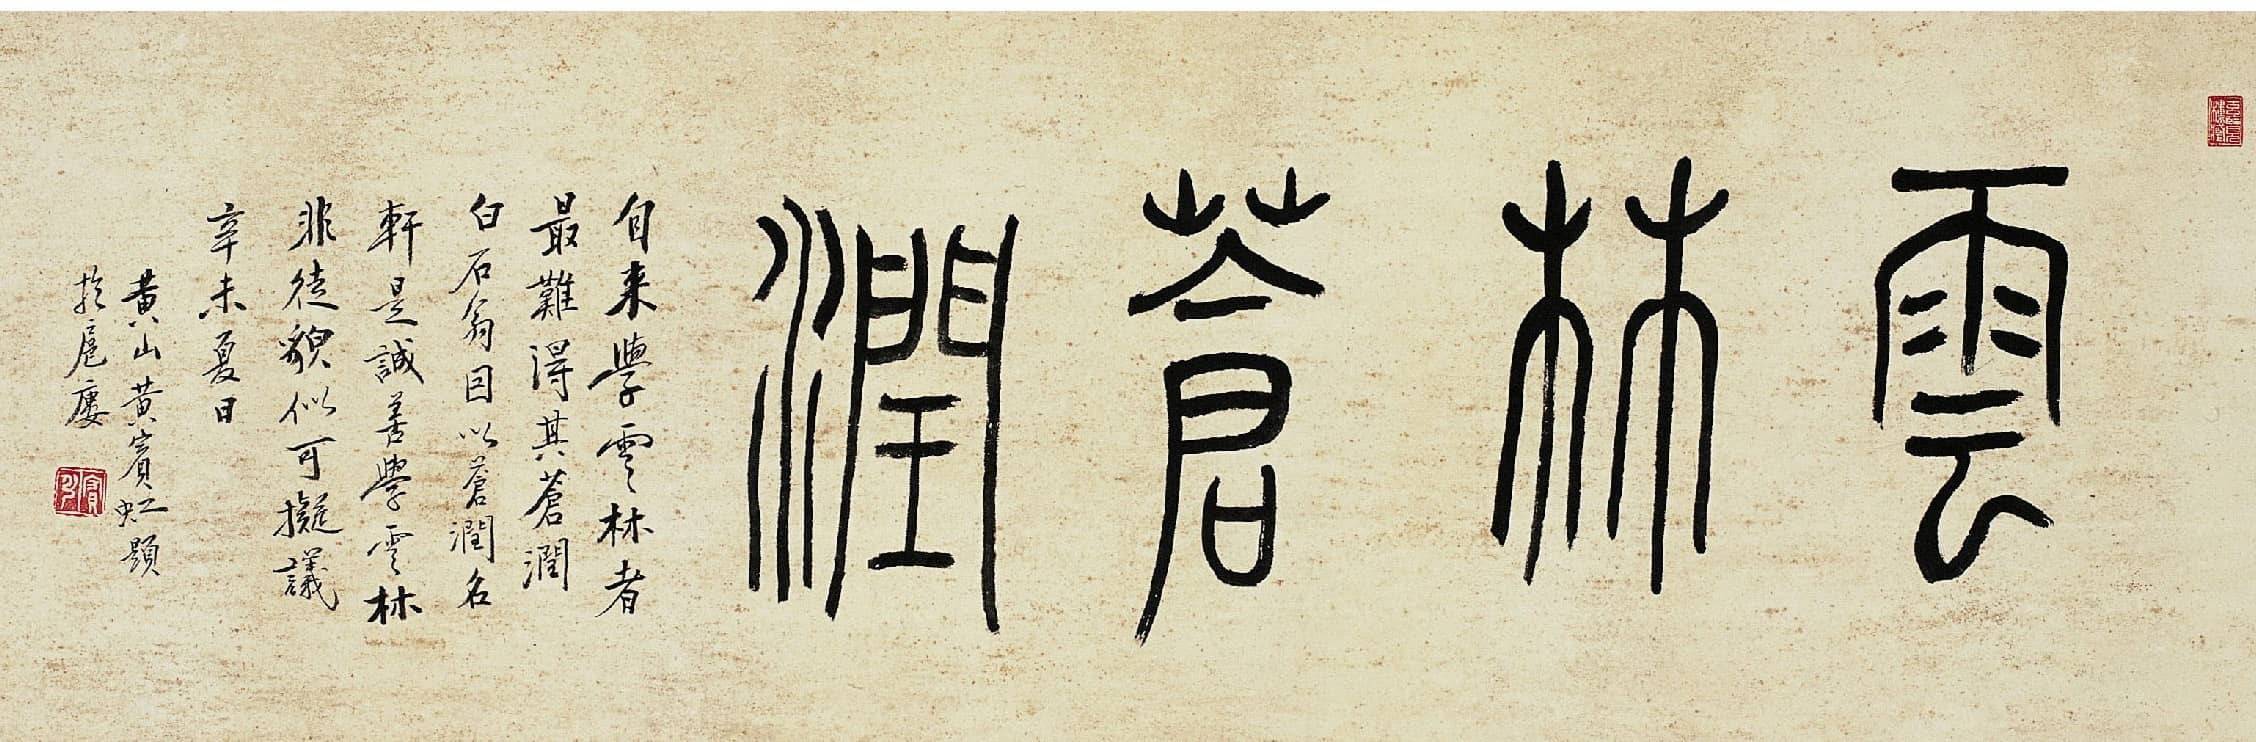 雲林蒼潤
自来學雲林者
最難得其蒼潤
白石翁因以蒼潤名
軒是誠善學雲林
非徒貌似可擬議
辛未夏日
黃山黃賓虹題
於扈廔